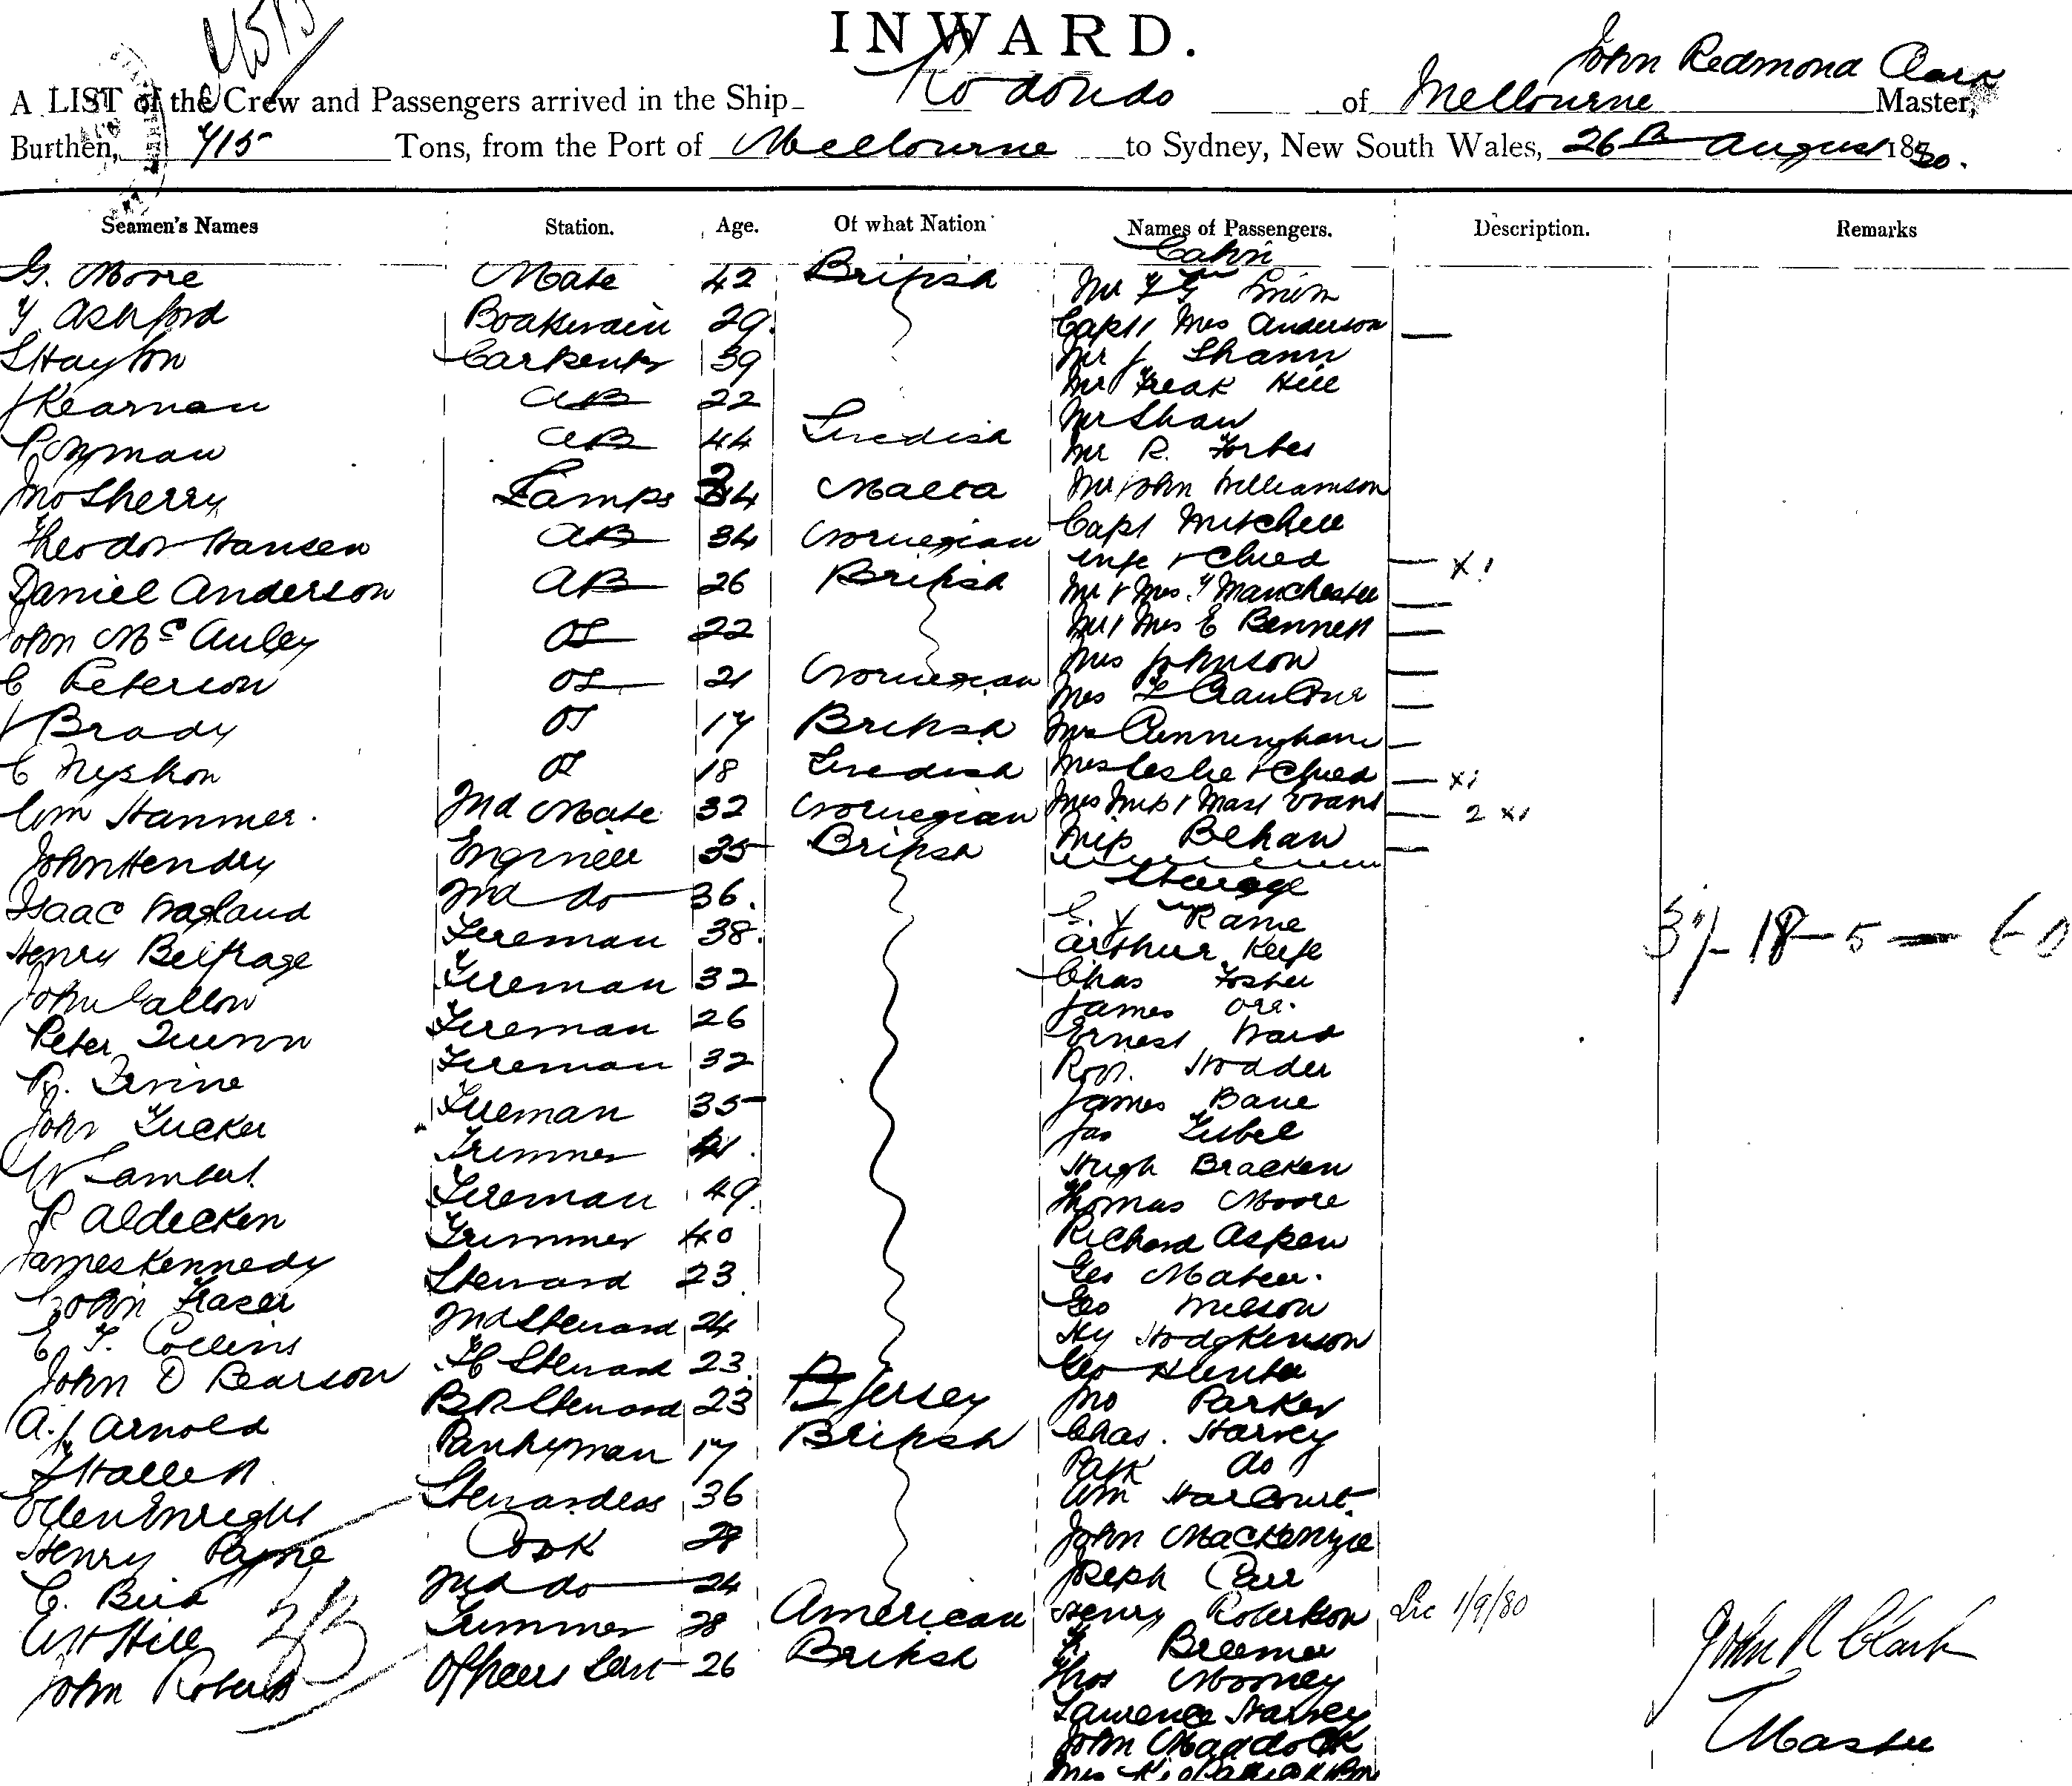 4515
INWARD.
John Redmond Clark
A LIST of the Crew and Passengers arrived in the Ship Rodondo of Melbourne Master,
Burthen, 715 Tons, from the Port of Melbourne to Sydney, New South Wales, 26th August 1880.
Seamen's Names Station. Age. Of what Nation Names of Passengers. Description. Remarks
Cabin
G. Moore Mate 42 British Mr
T Ashford Boatswain 29 Capt & Mrs Anderson —
S Hayton Carpenter 39 Mr J. Shann
J Kearnan AB 22 Mr Freak Hill
AB 44 Swedish Mr Shaw
Mr R. Forbes
Jno Sherry Lamps 34 Malta Mr John Williamson
Theodor Hansen AB 34 Norwegian Capt Mitchell
wife & Child — X1
Daniel Anderson AB 26 British Mr & Mrs T Manchester —
John McAuley OS 22 Mr & Mrs E Bennett —
C Peterson OS 21 Norwegian Mrs Johnson —
Mrs —
J Brady OS 17 British Mrs Cunningham —
C Nystrom OS 18 Swedish Mrs Leslie & Child — X1
Wm Hanmer. 2nd Mate 32 Norwegian Mrs Miss & Mast Evans — 2 X1
John Hendry Engineer 35 British Miss Behan —
Steerage
Isaac 2nd do 36. Rame
Henry Belfrage Fireman 38. Arthur Keefe
John Callow Fireman 32 Chas Foster
James Orr.
Peter Quinn Fireman 26 Ernest Ward
R. Irvine Fireman 32 Robt. Hodder
John Tucker Fireman 35 James Bane
W Lambert Trimmer 41. Jas
Hugh Bracken
P Aldecken Fireman 49. Thomas Moore
James Kennedy Trimmer 40 Richard Aspen
John Fraser Steward 23 Geo Mateer.
E T. Collins 2nd Steward 24 Geo Wilson
Hy Hodgkinson
John D Pearson FC Steward 23. Geo Hunter
A. J Arnold BR Steward 23 Jersey Jno Parker
T Hallett Pantryman 17 British Chas. Harvey
Patk do
Ellen Enright Stewardess 36 Wm Harcourt
Henry Payne Cook 28 John Mackenzie
C. Bird 2nd do 24 Joseph Carr
W Hill Trimmer 28 American Henry Robertson
John Roberts Officers Servt 26 British Bremer
Thos Mooney
Laurence Harvey
John Maddock
Mrs
3/- 18 - 5 —
1/9/80
33
John R Clark
Master